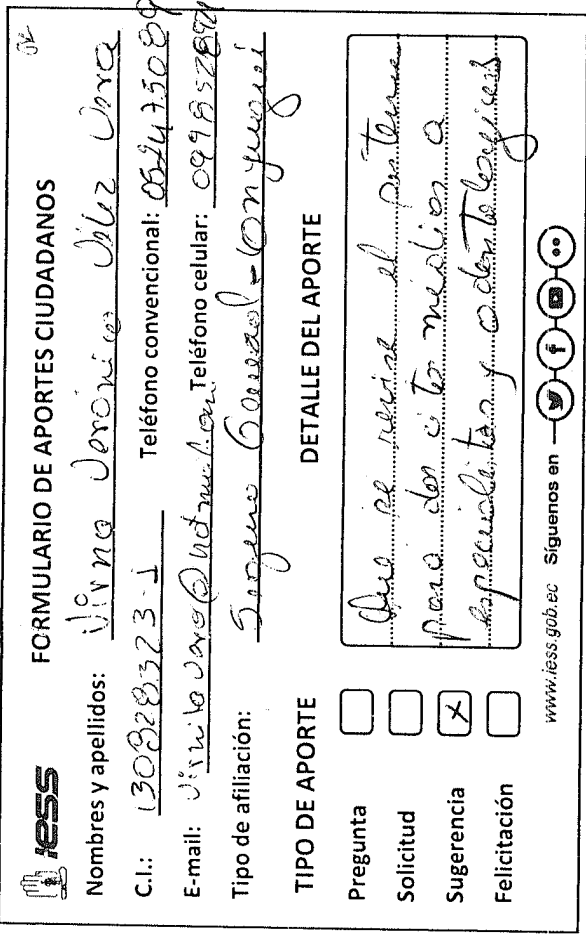 iess
FORMULARIO DE APORTES CIUDADANOS
Nombres y apellidos: Virna Verónica Vélez Vera
C.I.: 130828323-1 Teléfono convencional:
E-mail: Teléfono celular:
Tipo de afiliación: Seguro General - Conyugal
TIPO DE APORTE
Pregunta
Solicitud
Sugerencia X
Felicitación
DETALLE DEL APORTE
Que se revise el
para dar citas médicas a
especialistas y odontológicas
www.iess.gob.ec Síguenos en